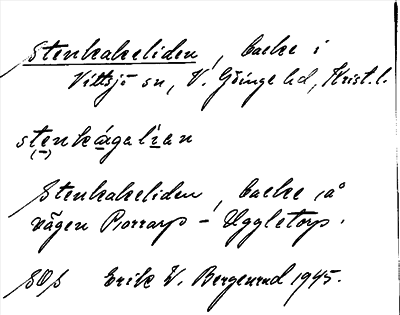 Stenkakeliden, backe i
Vittsjö sn, V. Göinge hd, Krist. l.
stenkágalian
Stenkakeliden, backe på
vägen Porrarp – Uggletorp.
SOS Erik V. Bergenrud 1945.